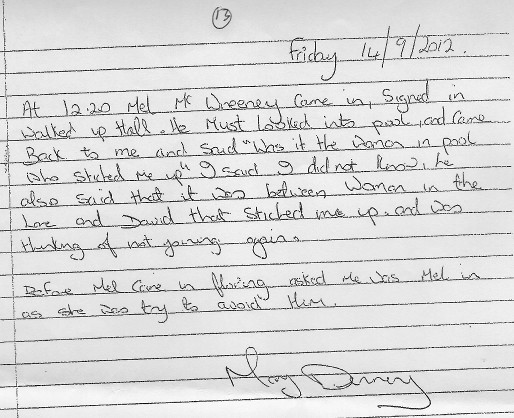 13
Friday 14/9/2012.
At 12.20 Mel Mc Wreeney Came in, Signed in
Walked up Hall. He Must Looked into pool, and Came
Back to me and Said "Was it the woman in pool
who Sticked me up" I said I did not know, he
also Said that it was between Woman in the
and David that Sticked me up. and was
thinking of not joining again.
Before Mel Came in asked me was Mel in
as she was try to avoid" Him.